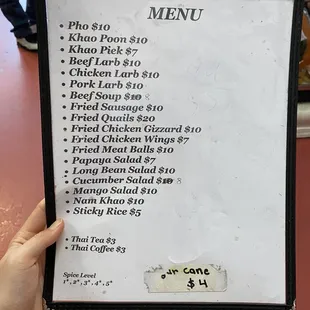 MENU
Pho $10
Khao Poon $10
Khao Piek $7
Beef Larb $10
Chicken Larb $10
Pork Larb $10
Beef Soup $10 8
Fried Sausage $10
Fried Quails $20
Fried Chicken Gizzard $10
Fried Chicken Wings $7
Fried Meat Balls $10
Papaya Salad $7
Long Bean Salad $10
Cucumber Salad $10 8
Mango Salad $10
Nam Khao $10
Sticky Rice $5
Thai Tea $3
Thai Coffee $3
Spice Level
1*, 2*, 3*, 4*, 5*
cane
$4